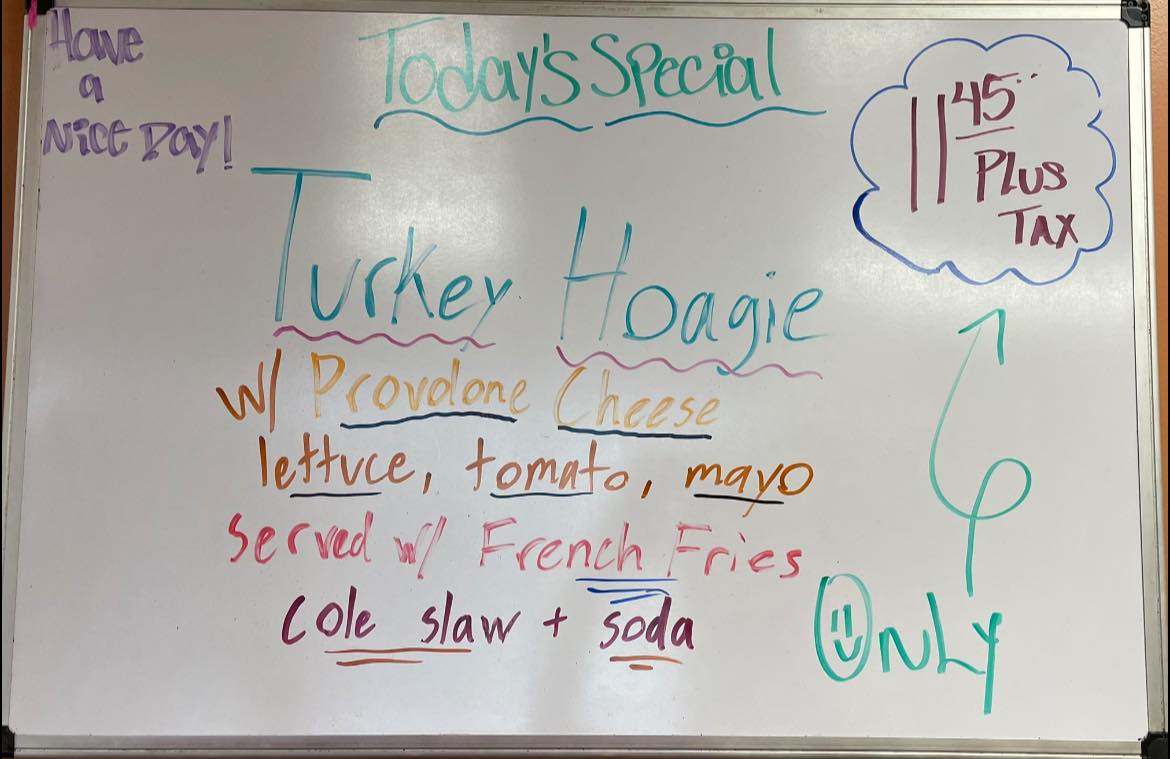 Have
a
Nice Day!
Today's Special
11 45
Plus
Tax
Turkey Hoagie
w/ Provolone Cheese
lettuce, tomato, mayo
Served w/ French Fries
cole slaw + soda
Only